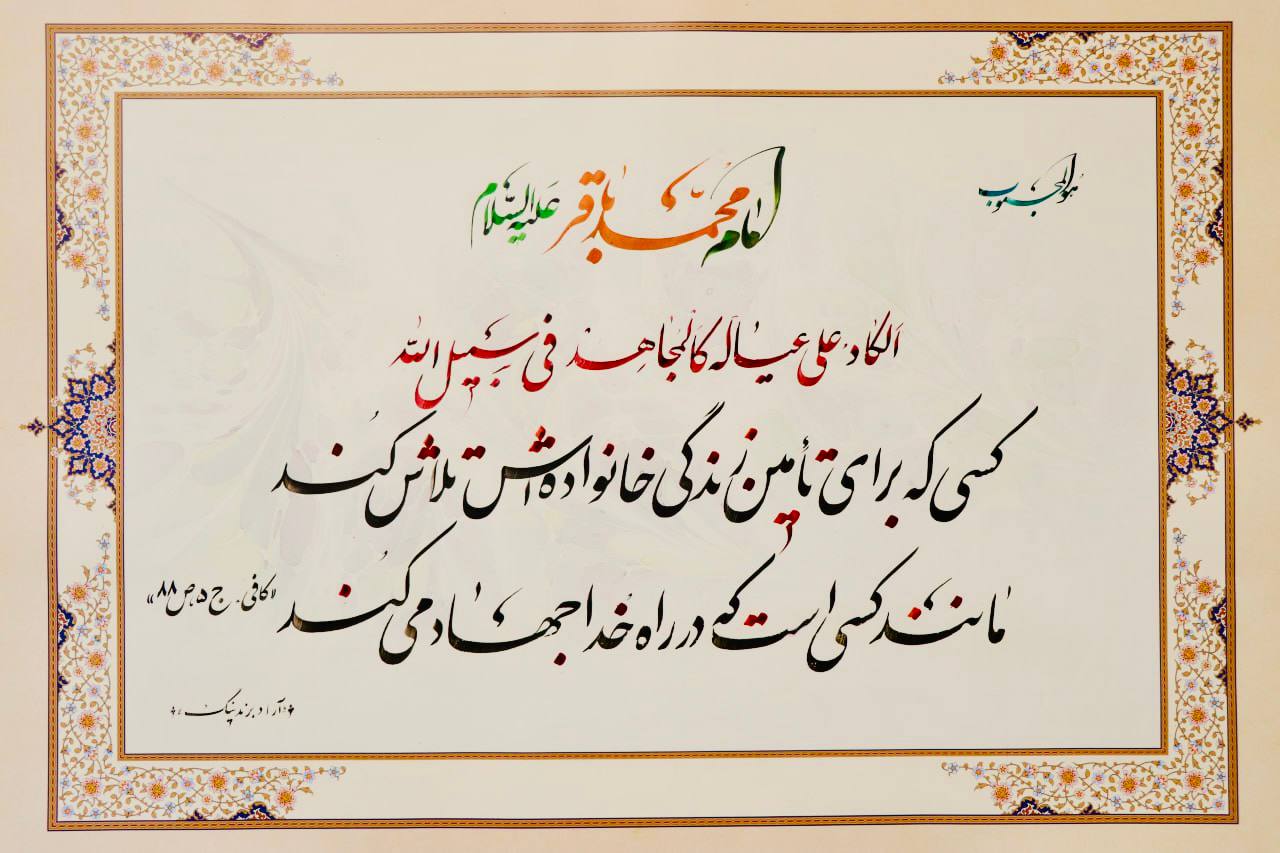 هُوَ المحبوب
امام محمّد باقر عَلَیهِ السَّلام
اَلکادُّ علی عیاله کَالمُجاهِد فی سَبیلِ الله
کسی که برای تأمین زندگی خانواده‌اش تلاش کُند
مانند کسی است که در راه خُدا جهاد می کُند
«کافی. ج ۵، ص ۸۸»